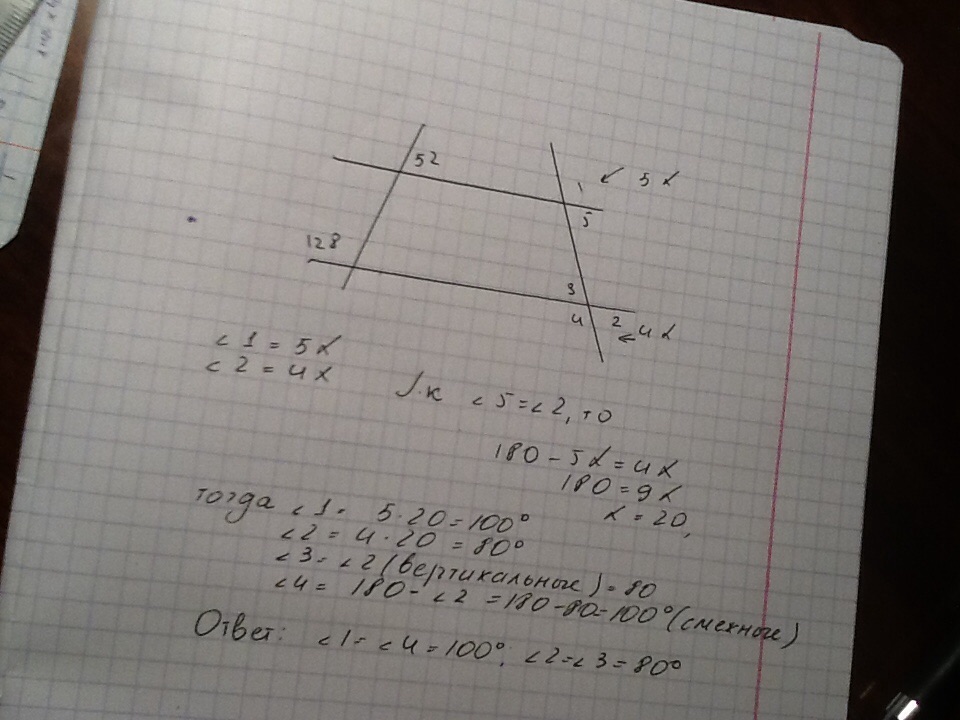 52
1 ← 5x
5
128
3
4 2 ← 4x
∠1 = 5x
∠2 = 4x
Т.к ∠5=∠2, то
180 - 5x = 4x
180 = 9x
x = 20,
тогда ∠1= 5·20=100°
∠2 = 4·20 = 80°
∠3=∠2(вертикальные)=80
∠4= 180-∠2 =180-80=100°(смежные)
Ответ: ∠1=∠4=100°; ∠2=∠3=80°